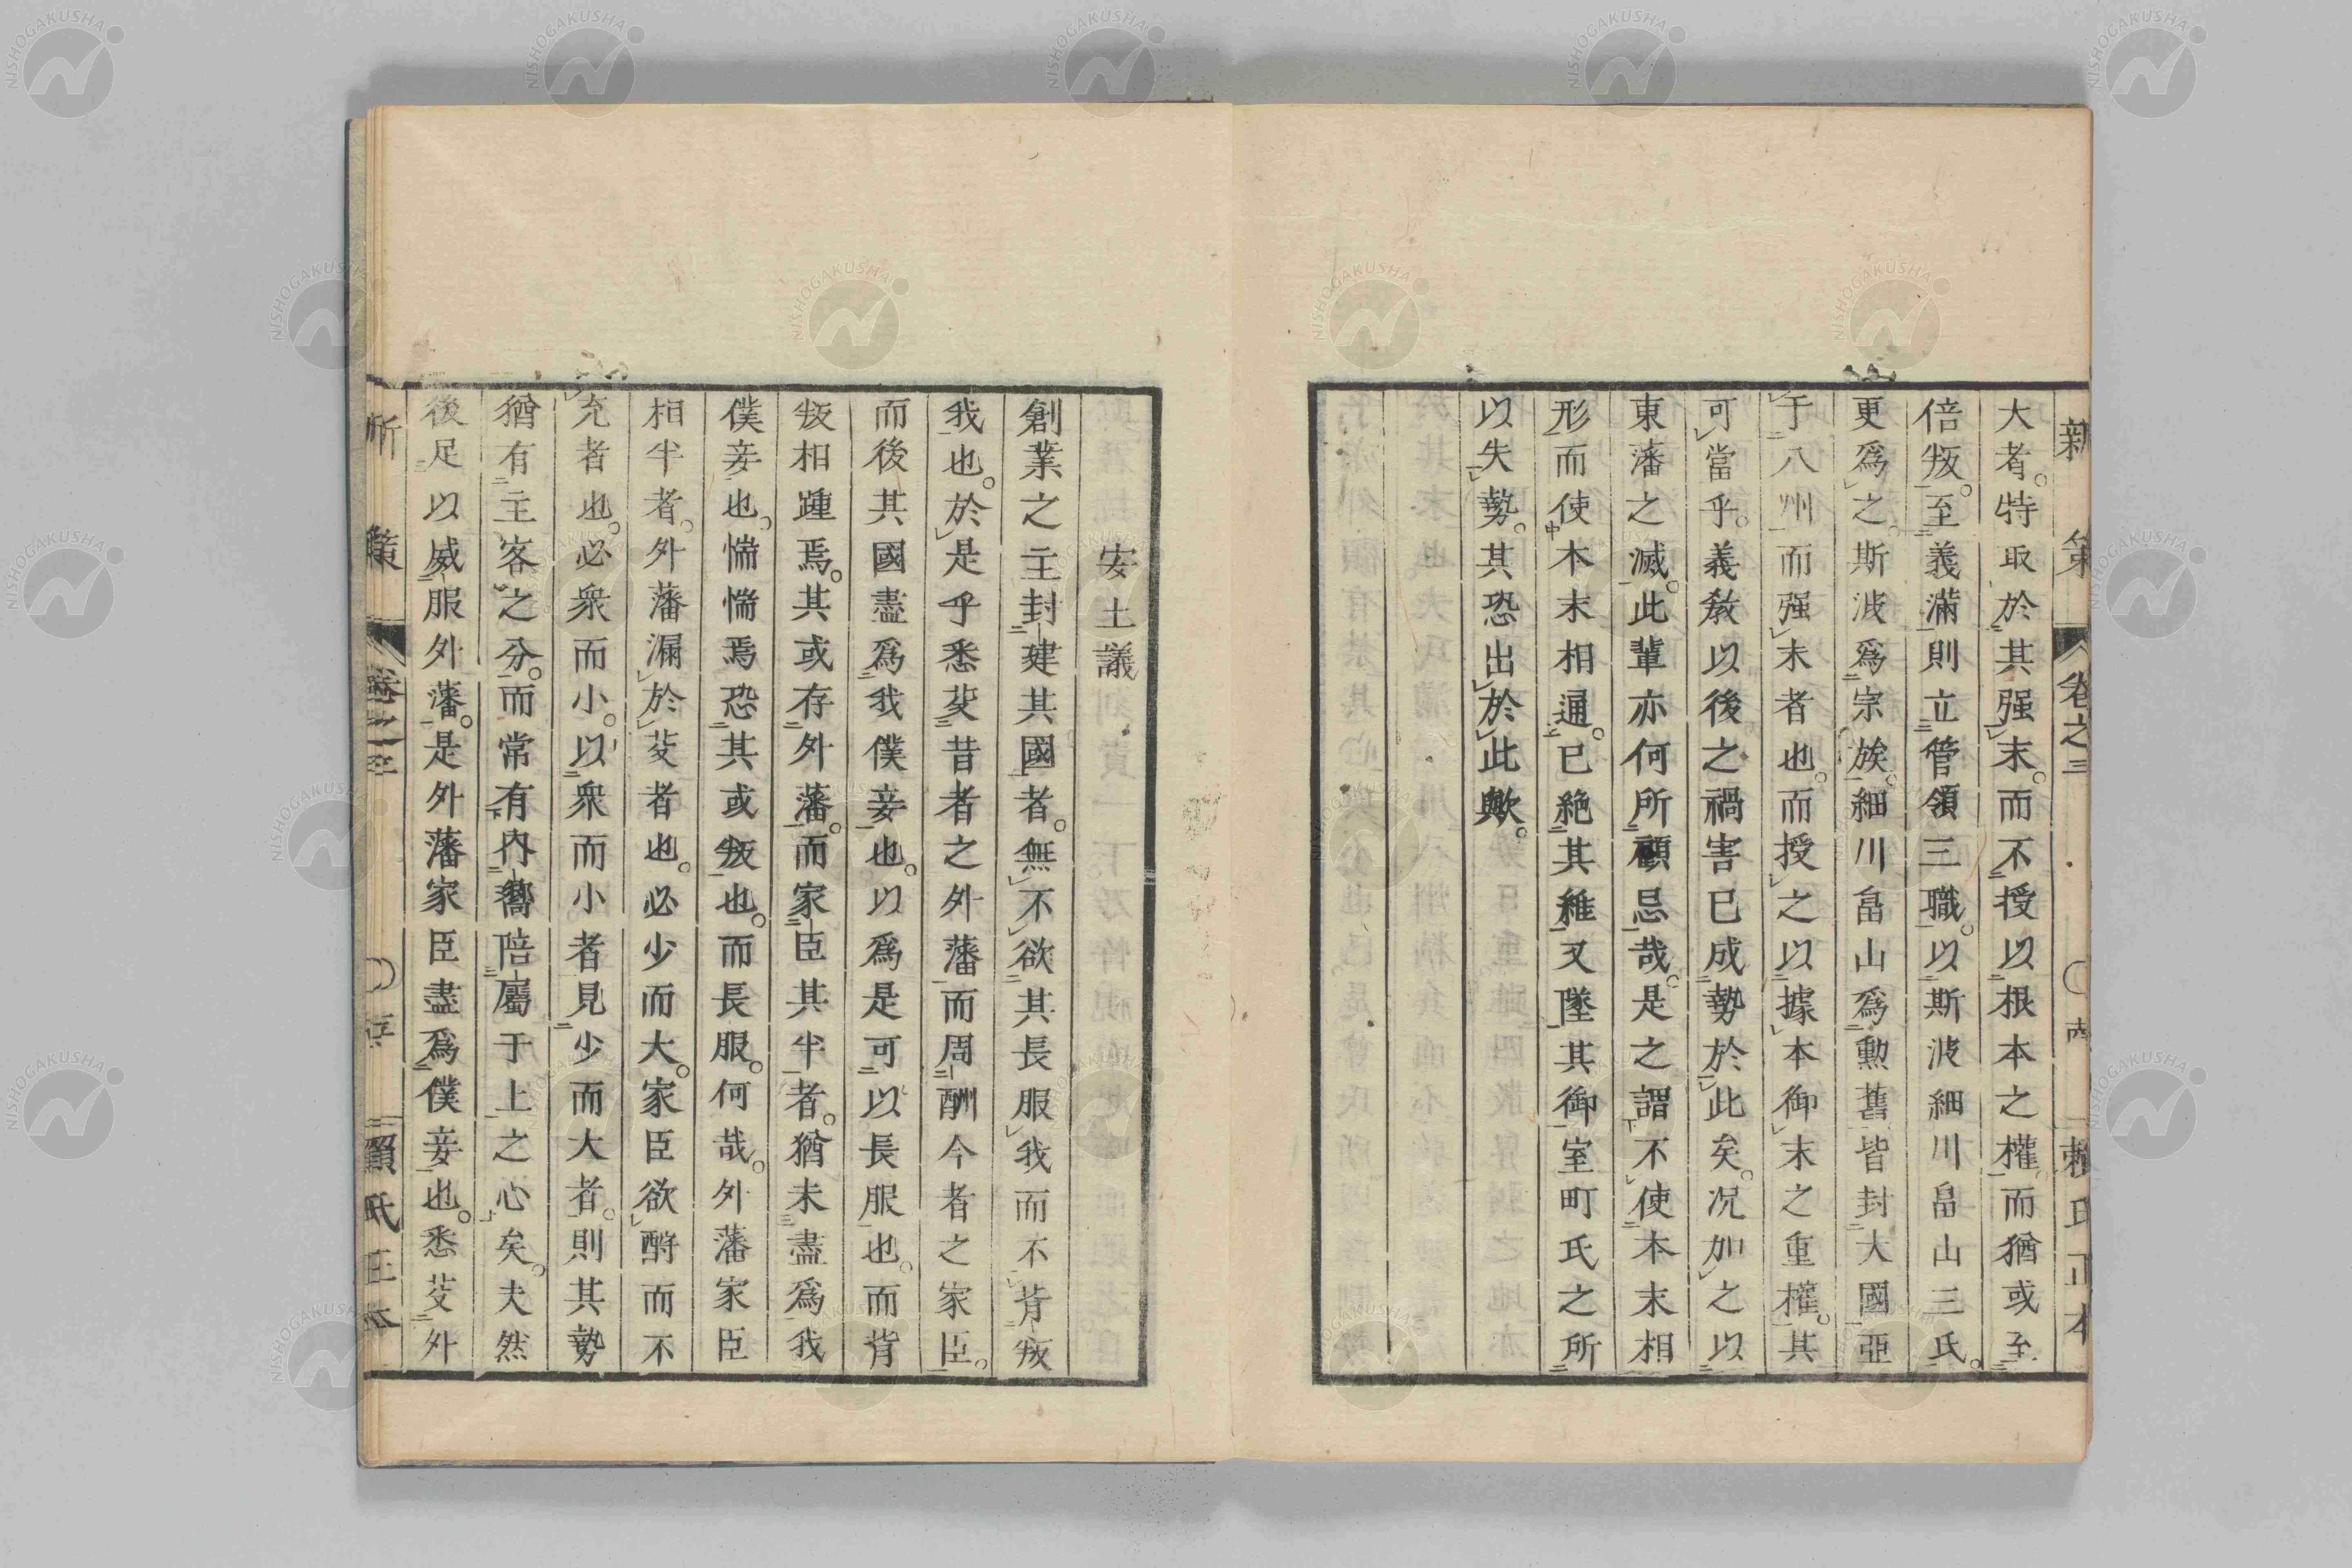 新策 卷之三 賴氏正本
大者。特取於其强末。而不授以根本之權。而猶或至
倍叛。至義滿則立管領三職。以斯波細川畠山三氏。
更爲之。斯波爲宗族。細川畠山爲勳舊皆封大國亞
于八州而强末者也。而授之以據本御末之重權。其
可當乎。義敎以後之禍害已成勢於此矣。况加之以
東藩之滅。此輩亦何所顧忌哉。是之謂不使本末相
形而使本末相通。已絶其維又墜其御室町氏之所
以失勢。其恐出於此歟。
安土議
創業之主封建其國者。無不欲其長服我而不背叛
我也。於是乎悉芟昔者之外藩而周酬今者之家臣。
而後其國盡爲我僕妾也。以爲是可以長服也。而背
叛相踵焉。其或存外藩。而家臣其半者。猶未盡爲我
僕妾也。惴惴焉恐其或叛也。而長服。何哉。外藩家臣
相半者。外藩漏於芟者也。必少而大。家臣欲酧而不
充者也。必衆而小。以衆而小者見少而大者。則其勢
猶有主客之分。而常有內嚮陪屬于上之心矣。夫然
後足以威服外藩。是外藩家臣盡爲僕妾也。悉芟外
新策 卷之三 賴氏正本
NISHOGAKUSHA